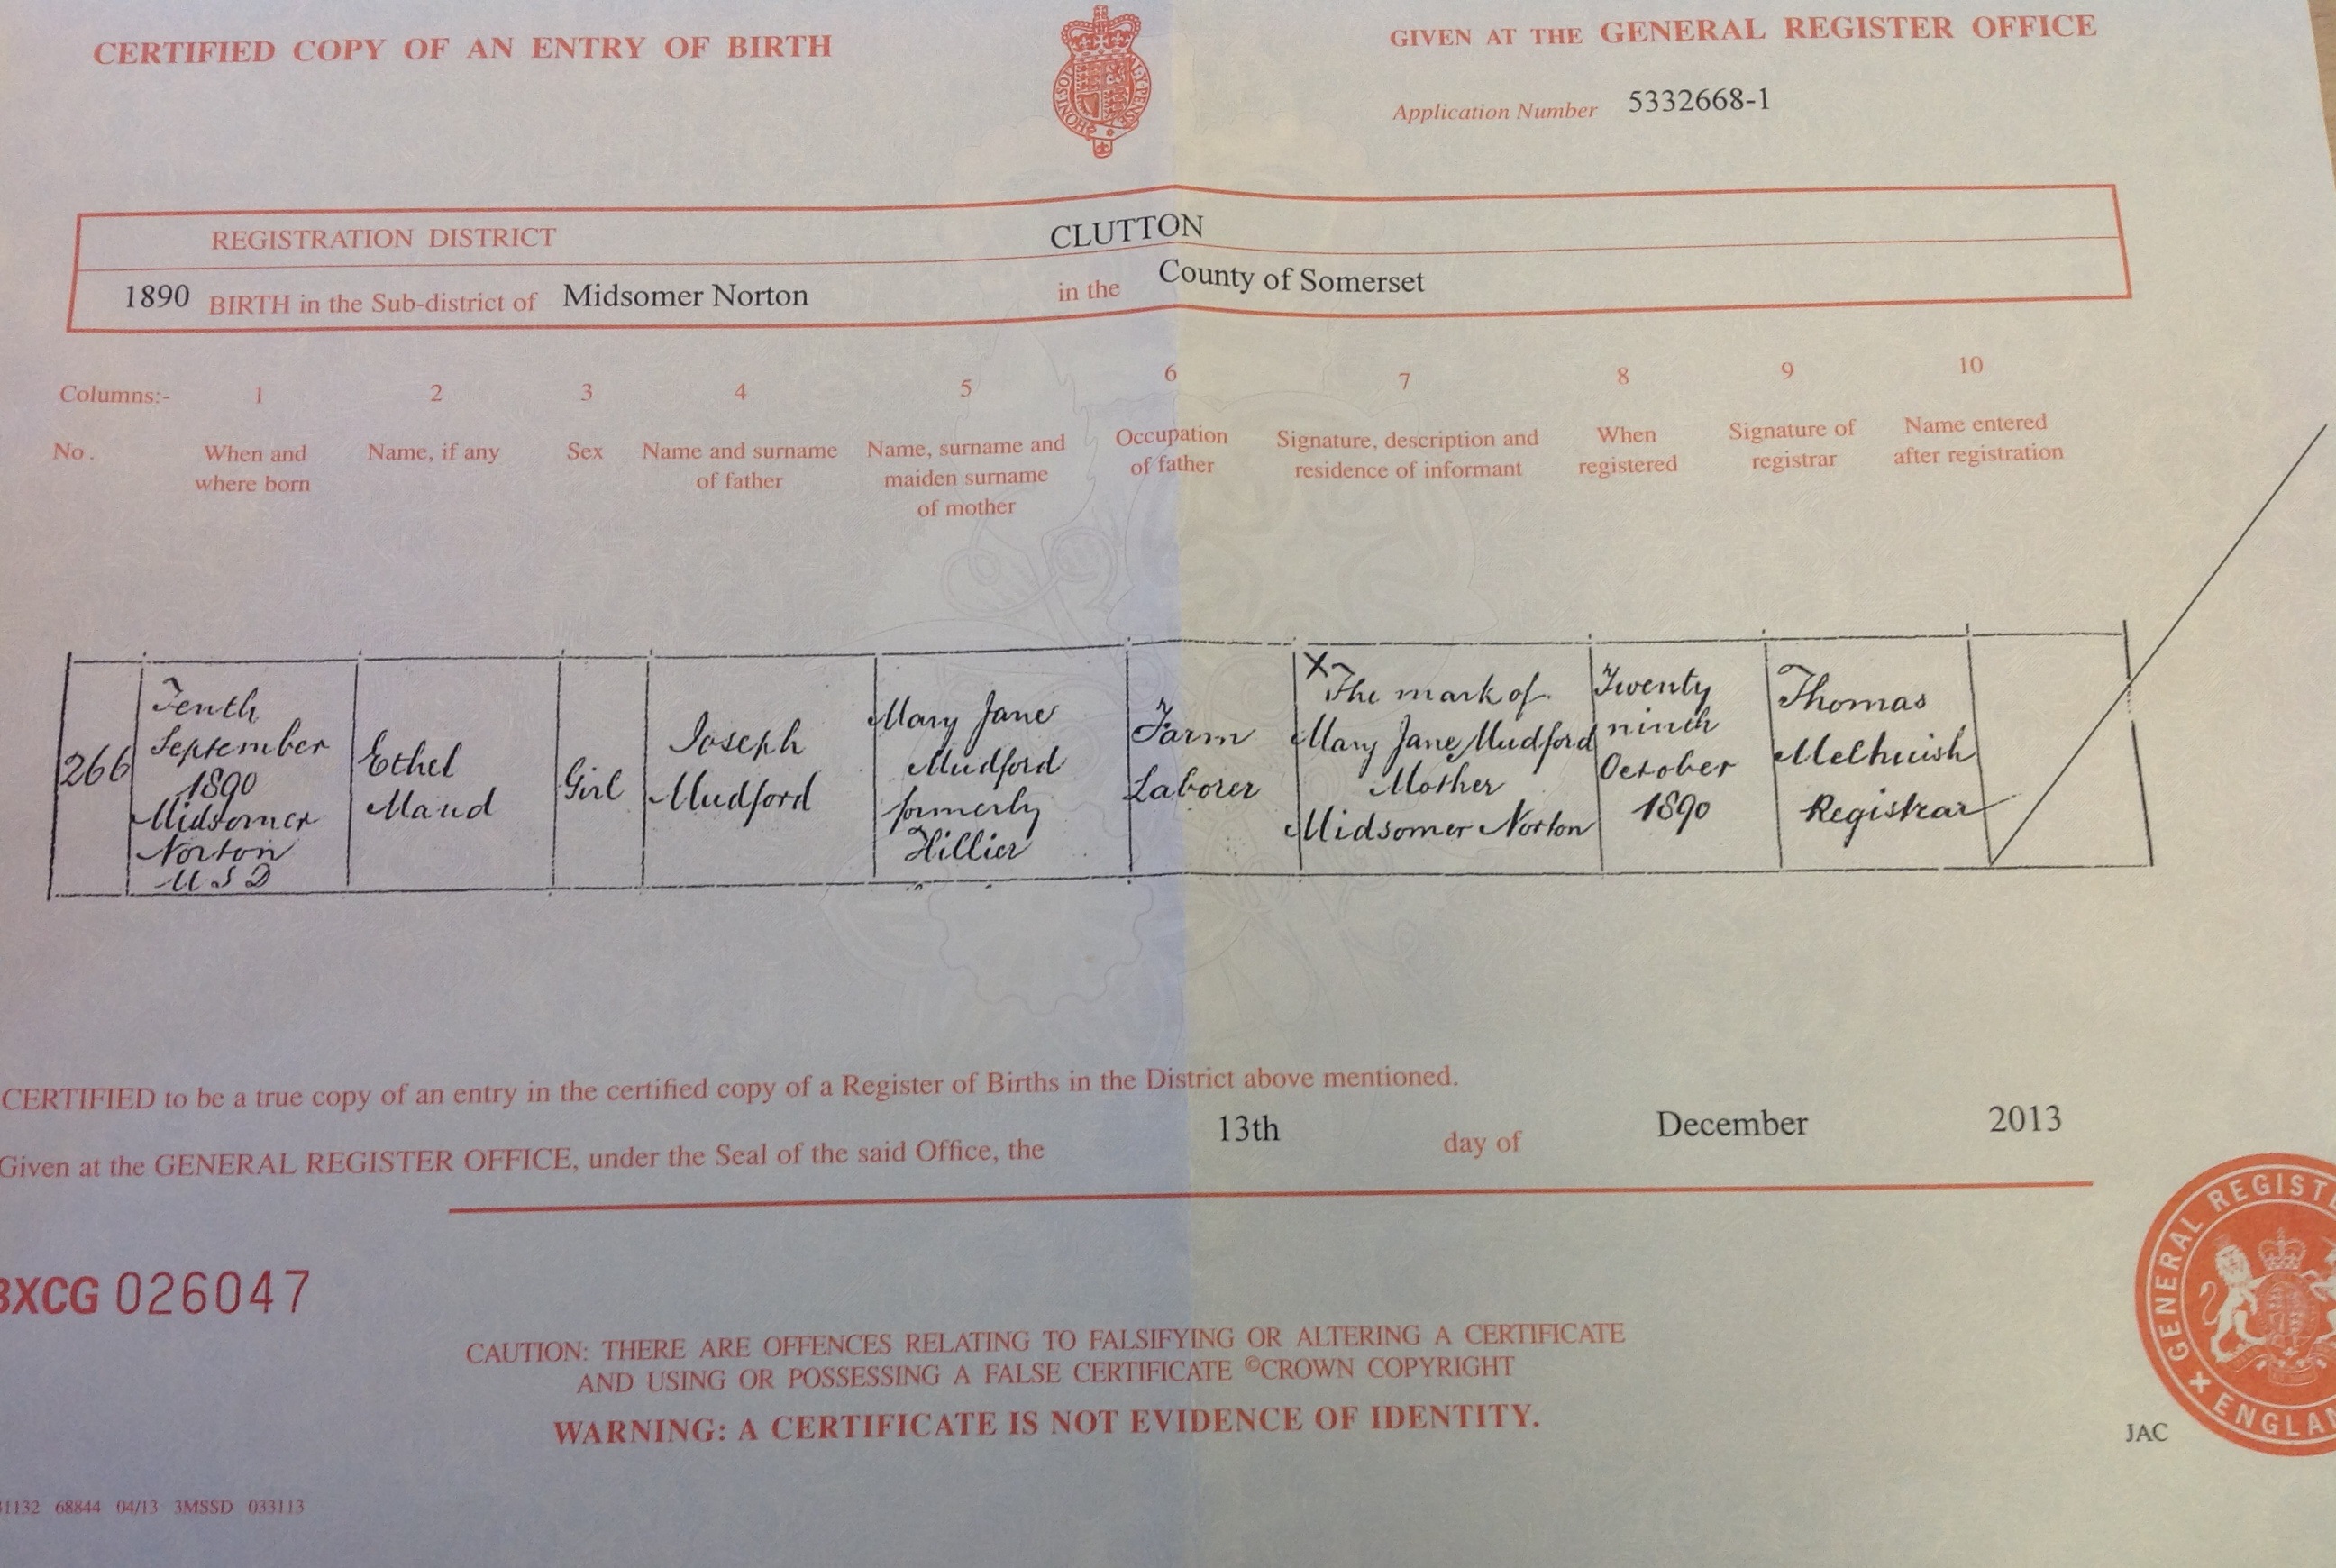 CERTIFIED COPY OF AN ENTRY OF BIRTH
GIVEN AT THE GENERAL REGISTER OFFICE
HONI·SOIT AL·Y·PENSE
Application Number 5332668-1
REGISTRATION DISTRICT CLUTTON
1890 BIRTH in the Sub-district of Midsomer Norton in the County of Somerset
Columns:- 1 2 3 4 5 6 7 8 9 10
No. When and where born
Name, if any
Sex
Name and surname of father
Name, surname and maiden surname of mother
Occupation of father
Signature, description and residence of informant
When registered
Signature of registrar
Name entered after registration
266
Tenth
September
1890
Midsomer
Norton
U S D
Ethel
Maud
Girl
Joseph
Mudford
Mary Jane
Mudford
formerly
Hillier
Farm
Laborer
X The mark of
Mary Jane Mudford
Mother
Midsomer Norton
Twenty
ninth
October
1890
Thomas
Melhuish
Registrar
CERTIFIED to be a true copy of an entry in the certified copy of a Register of Births in the District above mentioned.
Given at the GENERAL REGISTER OFFICE, under the Seal of the said Office, the 13th day of December 2013
BXCG 026047
GENERAL REGISTE
ENGLAN
CAUTION: THERE ARE OFFENCES RELATING TO FALSIFYING OR ALTERING A CERTIFICATE
AND USING OR POSSESSING A FALSE CERTIFICATE ©CROWN COPYRIGHT
WARNING: A CERTIFICATE IS NOT EVIDENCE OF IDENTITY.
JAC
1132 68844 04/13 3MSSD 033113